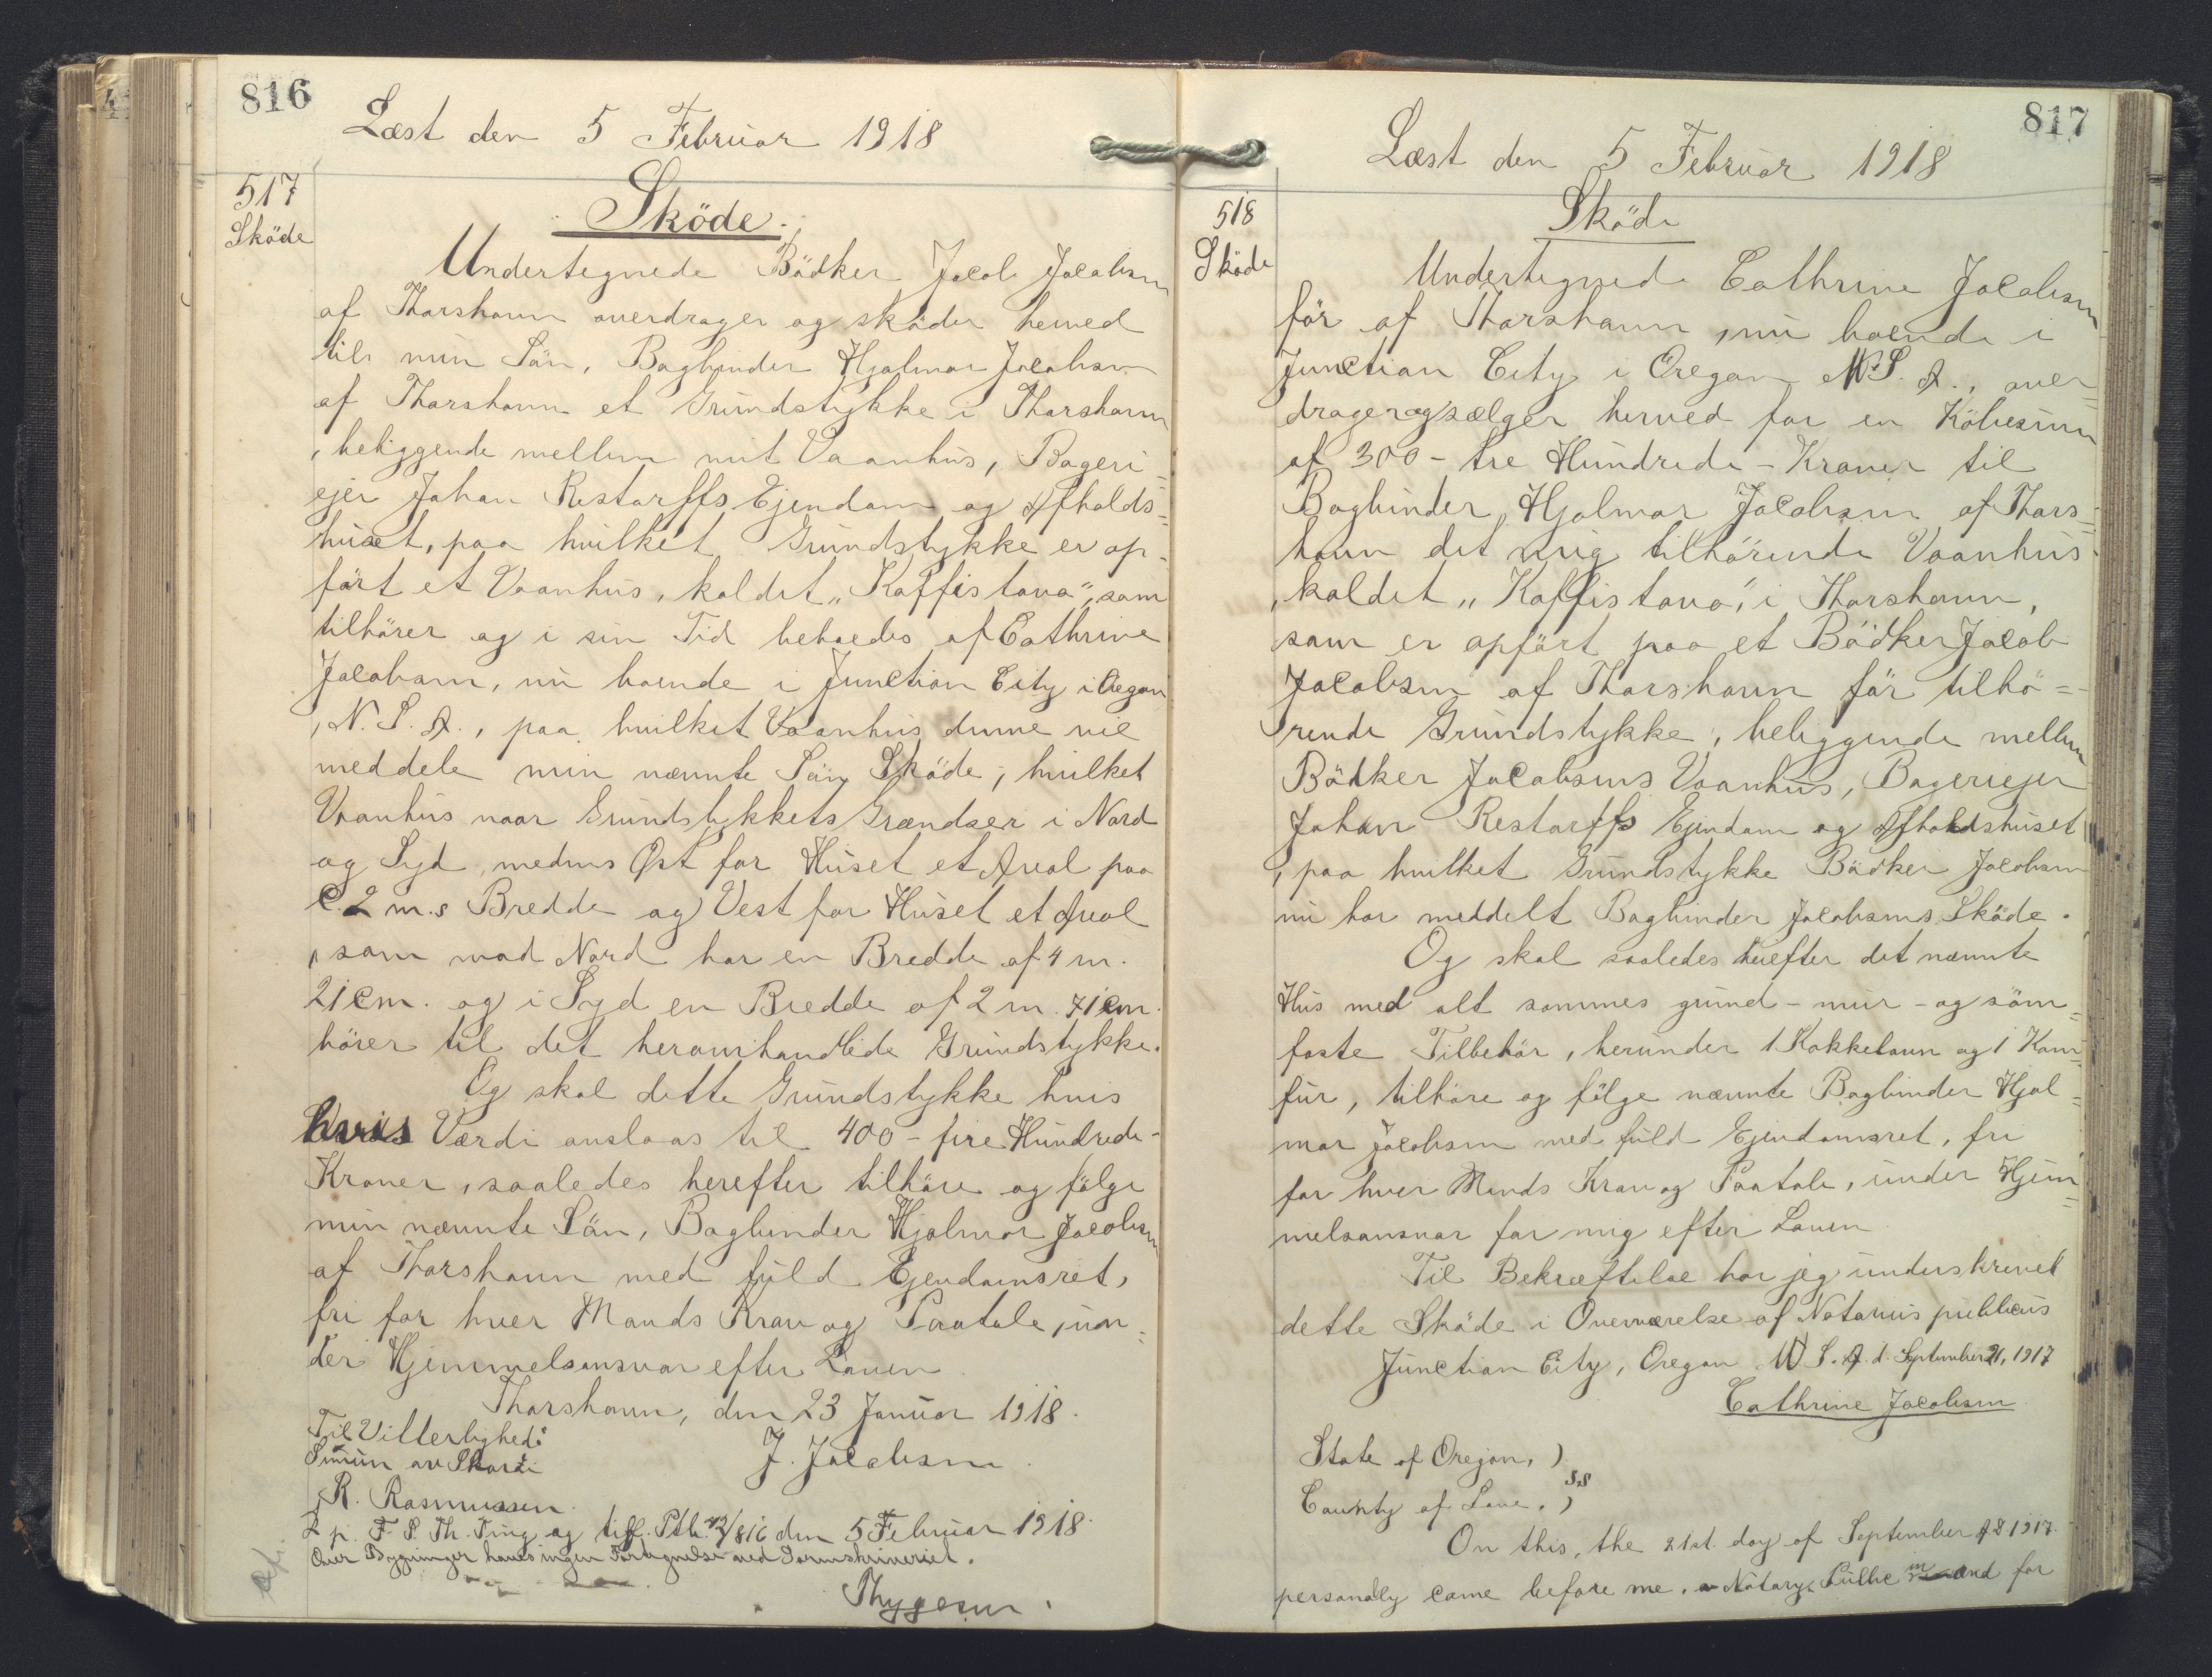 816
Læst den 5 Februar 1918
517
Sköde
Sköde.
Undertegnede Bödker Jacob Jacobsen
af Thorshavn overdrager og sköder herved
til min Sön, Bogbinder Hjalmar Jacobsen
af Thorshavn et Grundstykke i Thorshavn
, beliggende mellem mit Vaanhus, Bageri-
ejer Johan Restorffs Ejendom og Afholds=
huset, paa hvilket Grundstykke er op-
fört et Vaanhus, kaldet „Kaffistova", som
tilhörer og i sin Tid beboedes af Cathrine
Jacobsen, nu boende i Junction City i Oregon
, N. S. A., paa hvilket Vaanhus denne vil
meddele min nævnte Sön Sköde; hvilket
Vaanhus naar Grundstykkets Grændser i Nord
og Syd, medens Øst for Huset et Areal paa
c. 2 m.s Bredde og Vest for Huset et Areal
, som mod Nord har en Bredde af 4 m.
21 cm. og i Syd en Bredde af 2 m. 71 cm.
hörer til det heromhandlede Grundstykke.
Og skal dette Grundstykke hvis
hvis Værdi anslaas til 400 - fire Hundrede -
Kroner, saaledes herefter tilhöre og fölge
min nævnte Sön, Bogbinder Hjalmar Jacobsen
af Thorshavn med fuld Ejendomsret,
fri for hver Mands Krav og Paatale, un=
der Hjemmelsansvar efter Loven
Thorshavn, den 23 Januar 1918.
Til Vitterlighed:
Simun av Skardi
J. Jacobsen.
R. Rasmussen.
L p. F. S. Th. Ting og tilf. Ptb. /816 den 5 Februar 1918.
Over Bygninger haves ingen Fortegnelse ved Sorenskriveriet.
Thygesen.
817
Læst den 5 Februar 1918
518
Sköde
Sköde
Undertegnede Cathrine Jacobsen
för af Thorshavn, nu boende i
Junction City i Oregon N. S. A., over=
drager og sælger herved for en Köbesum
af 300 - tre Hundrede - Kroner til
Bogbinder Hjalmar Jacobsen af Thors=
havn det mig tilhörende Vaanhus
, kaldet „Kaffistova", i Thorshavn,
som er opfört paa et Bödker Jacob
Jacobsen af Thorshavn för tilhö=
rende Grundstykke, beliggende mellem
Bödker Jacobsens Vaanhus, Bageriejer
Johan Restorffs Ejendom og Afholdshuset
, paa hvilket Grundstykke Bödker Jacobsen
nu har meddelt Bogbinder Jacobsens Sköde.
Og skal saaledes herefter det nævnte
Hus med alt sammes grund - mur - og söm=
faste Tilbehör, herunder 1 Kakkelovn og 1 Kom=
fur, tilhöre og fölge nævnte Bogbinder Hjal=
mar Jacobsen med fuld Ejendomsret, fri
for hver Mands Krav og Paatale, under Hjem=
melsansvar for mig efter Loven
Til Bekræftelse har jeg underskrevet
dette Sköde i Overværelse af Notarius publicus
Junction City, Oregon N S. A. d. September 21, 1917
Cathrine Jacobsen
State of Oregon, )
County of Lane. ) SS
On this, the 21st. day of September AD 1917.
personally came before me, a Notary Public in and for